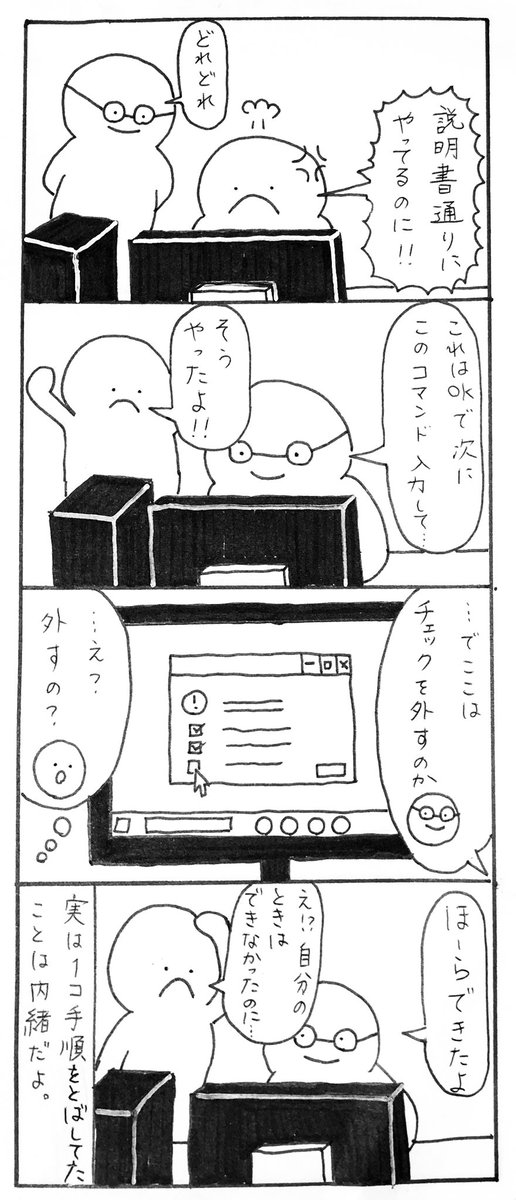 説明書通りに
やってるのに!!
どれどれ
これはOKで次に
このコマンド入力して…
そう
やったよ!!
…でここは
チェックを外すのか
…え?
外すの?
ほーらできたよ
え!?自分の
ときは
できなかったのに…
実は1コ手順をとばしてた
ことは内緒だよ。